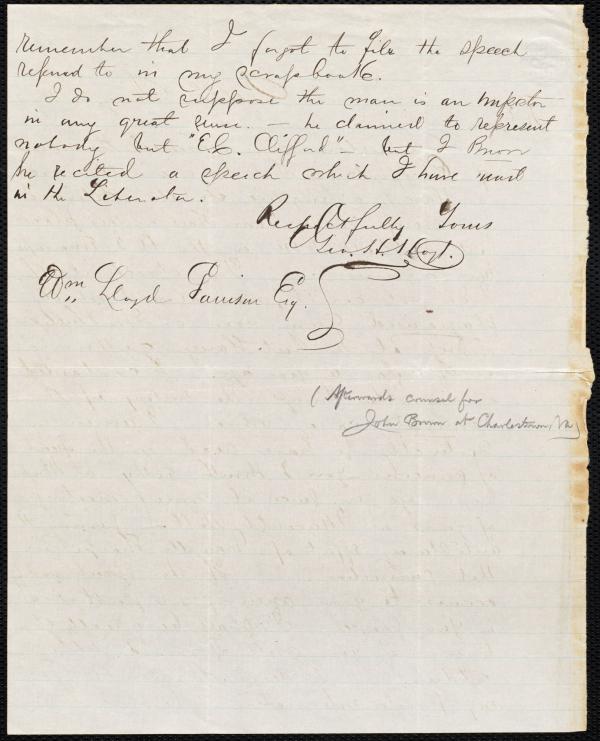 remember that I forgot to file the speech
refered to in my scrapbook.
I do not suppose the man is an impostor
in any great sense. — he claimed to represent
nobody but "E.C. Clifford" — but I know
he recited a speech which I have read
in the Liberator.
Respectfully Yours
Geo. H. Hoyt.
Wm. Lloyd Garrison Esq.
(Afterwards counsel for
John Brown at Charlestown, Va.)